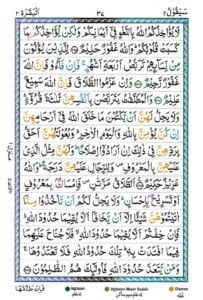 سَيَقُوْلُ ٢
٣٤
اَلْبَقَرَة ٢
لَا يُؤَاخِذُكُمُ اللّٰهُ بِاللَّغْوِ فِيْٓ اَيْمَانِكُمْ وَلٰكِنْ يُّؤَاخِذُكُمْ بِمَا
كَسَبَتْ قُلُوْبُكُمْ وَاللّٰهُ غَفُوْرٌ حَلِيْمٌ لِلَّذِيْنَ يُؤْلُوْنَ
مِنْ نِّسَآئِهِمْ تَرَبُّصُ اَرْبَعَةِ اَشْهُرٍ فَاِنْ فَآءُوْ فَاِنَّ اللّٰهَ
غَفُوْرٌ رَّحِيْمٌ وَاِنْ عَزَمُوا الطَّلَاقَ فَاِنَّ اللّٰهَ سَمِيْعٌ
عَلِيْمٌ وَالْمُطَلَّقٰتُ يَتَرَبَّصْنَ بِاَنْفُسِهِنَّ ثَلٰثَةَ قُرُوْٓءٍ
وَلَا يَحِلُّ لَهُنَّ اَنْ يَّكْتُمْنَ مَا خَلَقَ اللّٰهُ فِيْٓ اَرْحَامِهِنَّ
اِنْ كُنَّ يُؤْمِنَّ بِاللّٰهِ وَالْيَوْمِ الْاٰخِرِ وَبُعُوْلَتُهُنَّ اَحَقُّ بِرَدِّهِنَّ
فِيْ ذٰلِكَ اِنْ اَرَادُوْٓا اِصْلَاحًا وَلَهُنَّ مِثْلُ الَّذِيْ
عَلَيْهِنَّ بِالْمَعْرُوْفِ وَلِلرِّجَالِ عَلَيْهِنَّ دَرَجَةٌ وَاللّٰهُ
عَزِيْزٌ حَكِيْمٌ اَلطَّلَاقُ مَرَّتٰنِ فَاِمْسَاكٌ بِمَعْرُوْفٍ
اَوْ تَسْرِيْحٌ بِاِحْسَانٍ وَلَا يَحِلُّ لَكُمْ اَنْ تَاْخُذُوْا مِمَّآ
اٰتَيْتُمُوْهُنَّ شَيْئًا اِلَّآ اَنْ يَّخَافَآ اَلَّا يُقِيْمَا حُدُوْدَ اللّٰهِ
فَاِنْ خِفْتُمْ اَلَّا يُقِيْمَا حُدُوْدَ اللّٰهِ فَلَا جُنَاحَ عَلَيْهِمَا
فِيْمَا افْتَدَتْ بِهٖ تِلْكَ حُدُوْدُ اللّٰهِ فَلَا تَعْتَدُوْهَا
وَمَنْ يَّتَعَدَّ حُدُوْدَ اللّٰهِ فَاُولٰٓئِكَ هُمُ الظّٰلِمُوْنَ